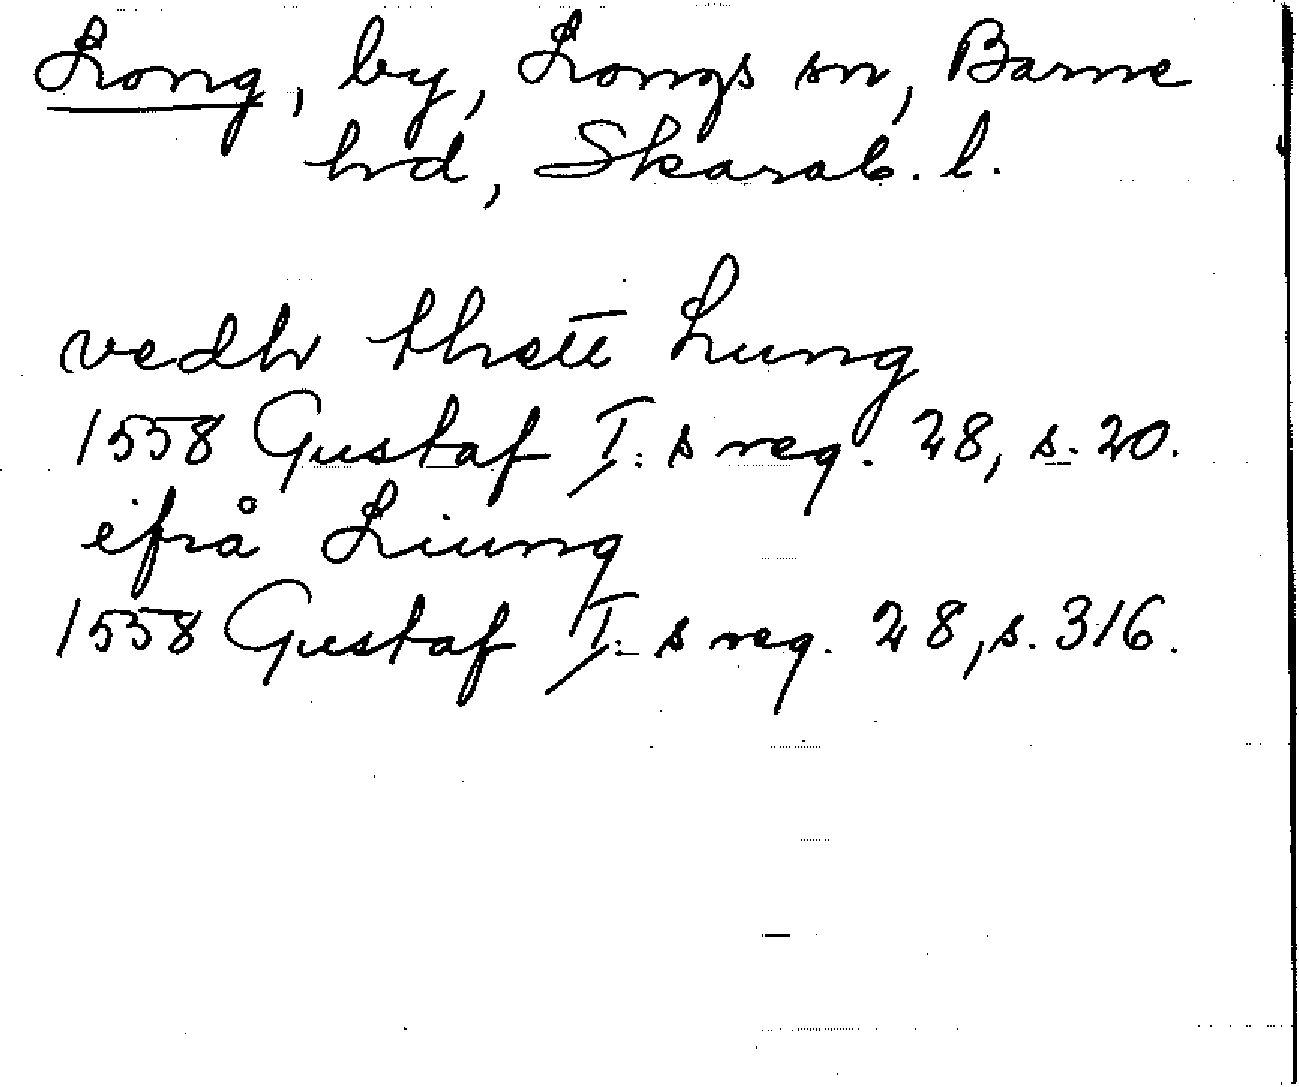 Long, by, Longs sn, Barne
hd, Skarab. l.
vedh thett Lung
1558 Gustaf I:s reg. 28, s. 20.
ifrå Liung
1558 Gustaf I:s reg. 28, s. 316.